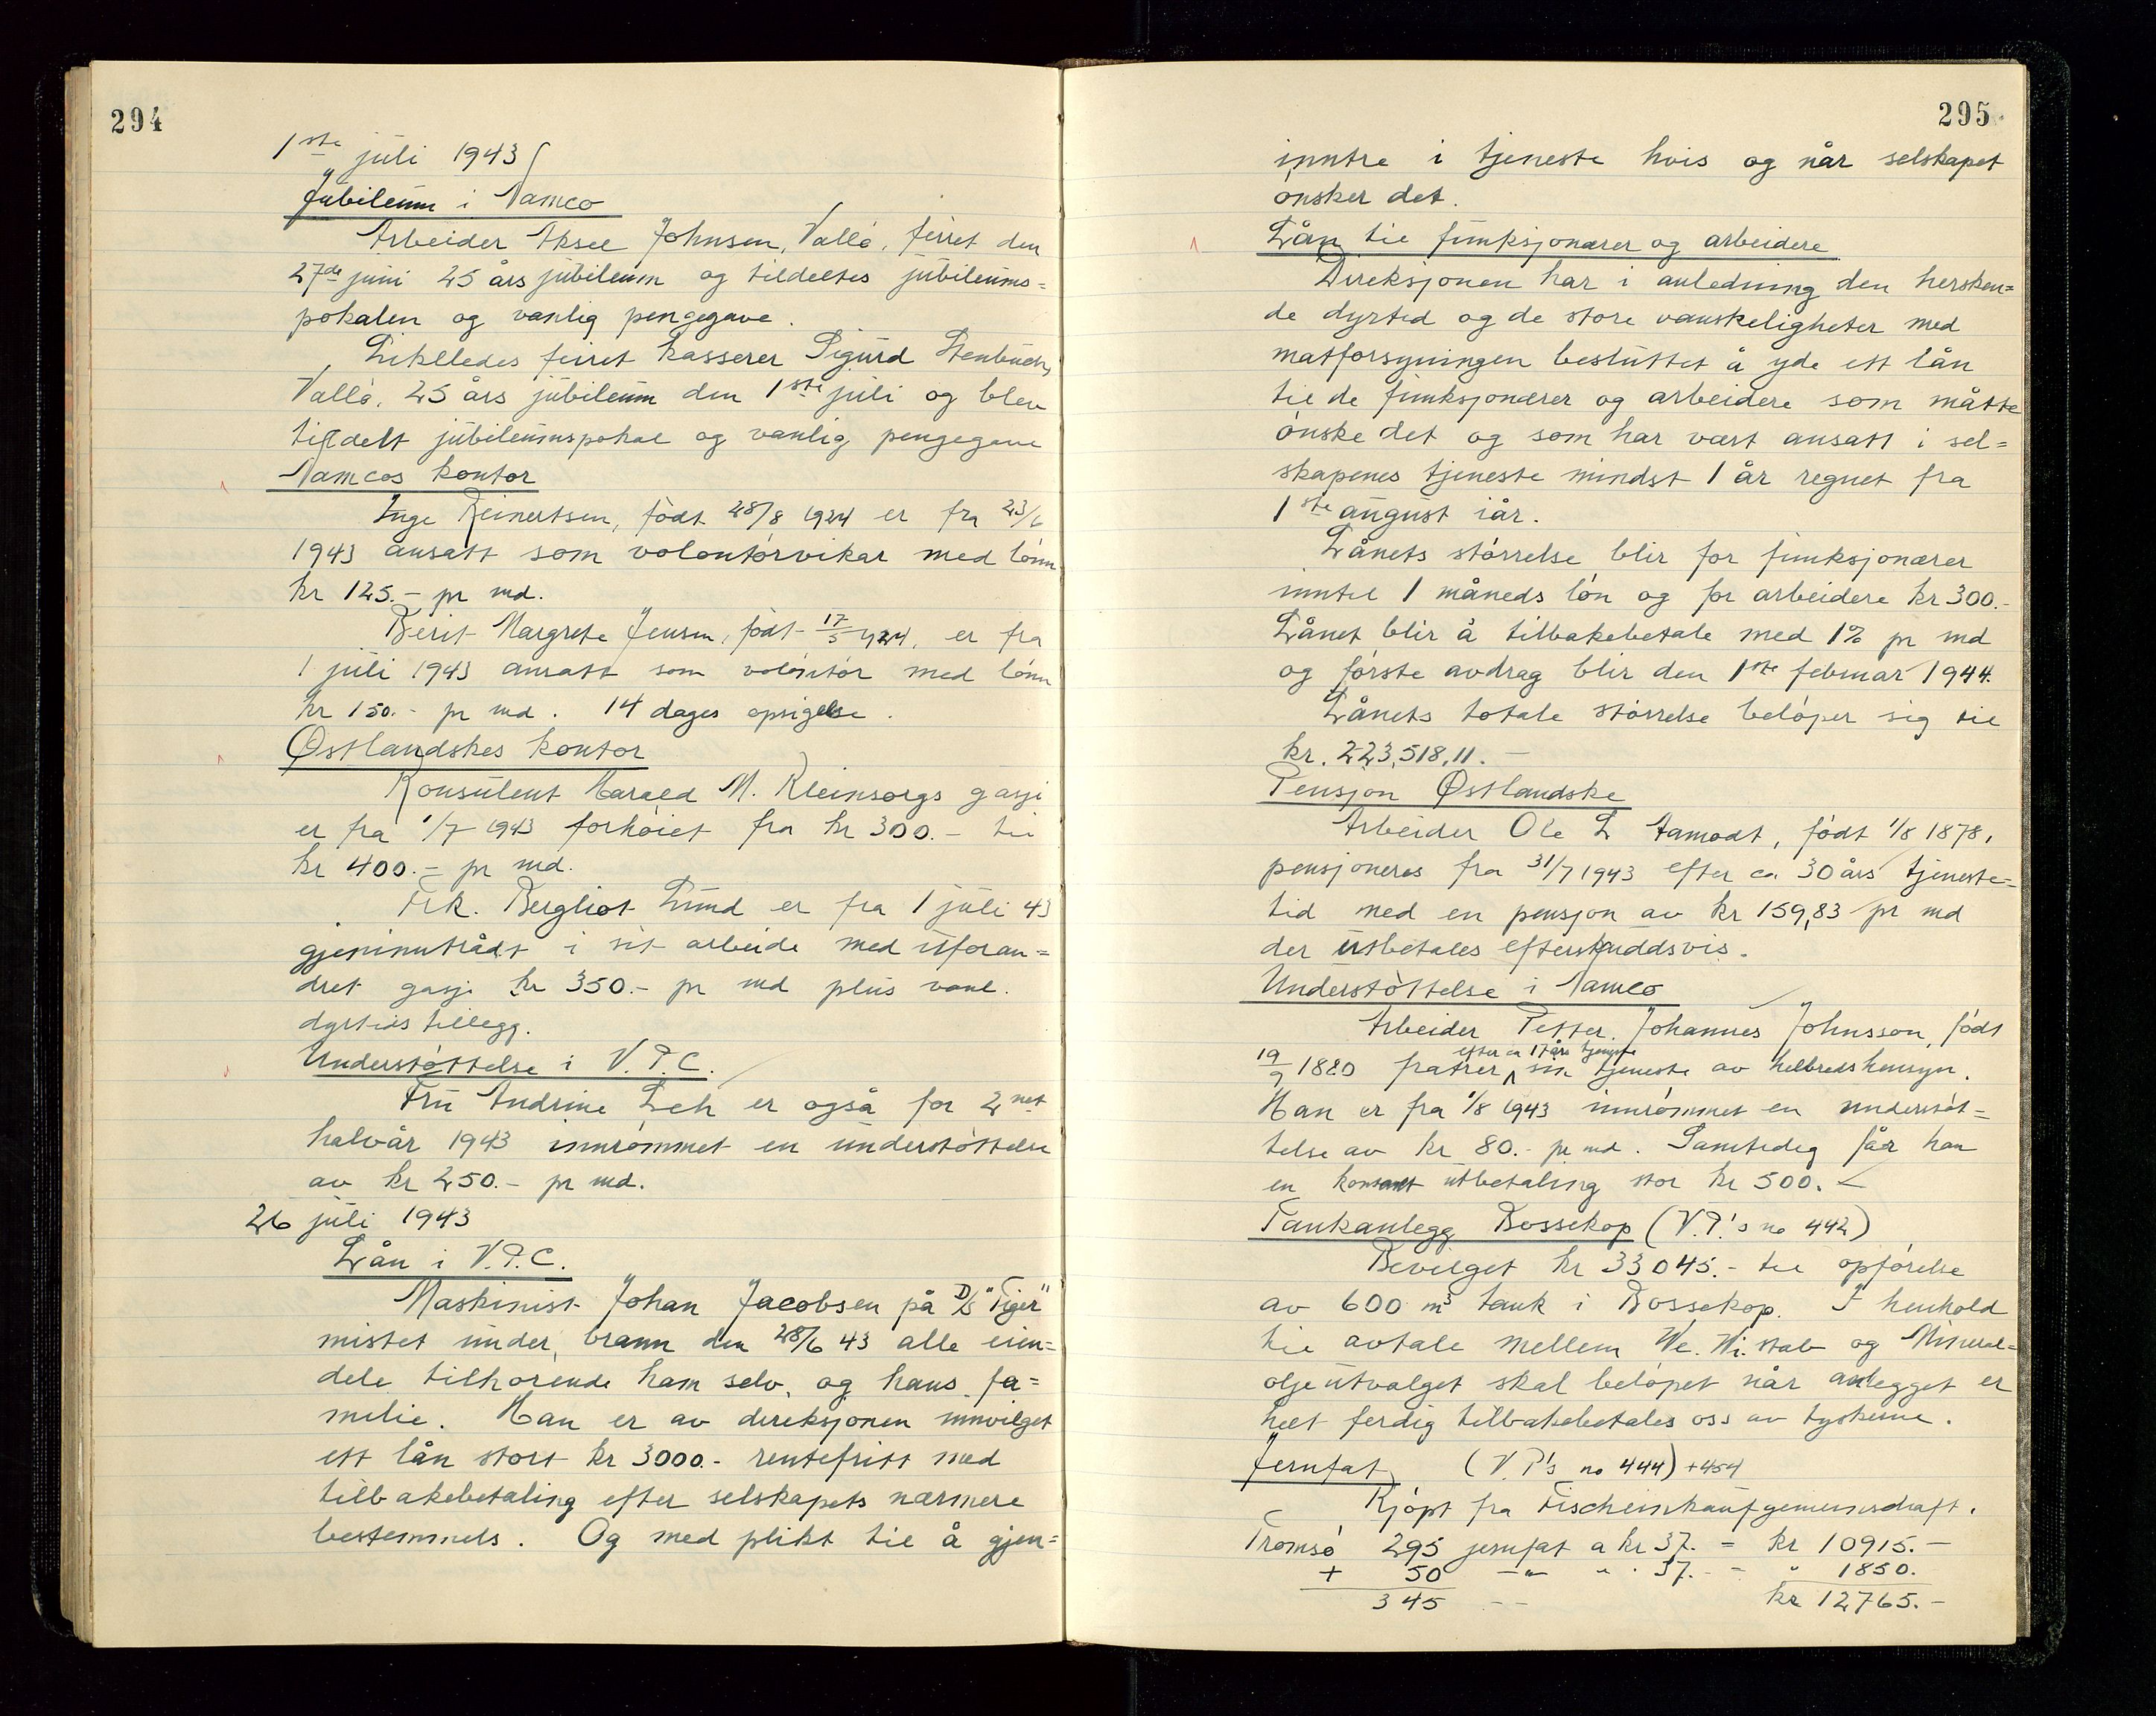 294
1ste juli 1943
Jubileum i Namco
Arbeider Aksel Johnsen, Vallö, feiret den
27de juni 25 års jubileum og tildeltes jubileums=
pokalen og vanlig pengegave.
Likelledes feiret kasserer Sigurd Stenbuch,
Vallö, 25 års jubileum den 1ste juli og blev
tildelt jubileumspokal og vanlig pengegave
Namcos kontor
Inge Reinertsen, födt 28/8 1924 er fra 23/6
1943 ansatt som volontörvikar med lönn
kr 125.- pr md.
Berit Margrete Jensen, födt 17/5 1924, er fra
1 juli 1943 ansatt som volontör med lönn
kr 150.- pr md. 14 dages opsigelse.
Østlandskes kontor
Konsulent Harald M. Kleinsorgs gasje
er fra 1/7 1943 forhöiet fra kr 300.- til
kr 400.- pr md.
Frk. Bergliot Lund er fra 1 juli 43
gjeninntrådt i sit arbeide med uforan=
dret gasje kr 350.- pr md plus vanl.
dyrtids tillegg.
Understöttelse i V.P.C.
Fru Andrine Leh er også for 2net
halvår 1943 innrömmet en understöttelse
av kr 250.- pr md.
26 juli 1943
Lån i V.P.C.
Maskinist Johan Jacobsen på D/S "Tiger"
mistet under brann den 28/6 43 alle eien=
dele tilhörende ham selv og hans fa=
milie. Han er av direksjonen innvilget
ett lån stort kr 3000.- rentefritt med
tilbakebetaling efter selskapets nærmere
bestemmels. Og med plikt til å gjen=
295
inntre i tjeneste hvis og når selskapet
önsker det.
Lån til funksjonærer og arbeidere
Direksjonen har i anledning den hersken=
de dyrtid og de store vanskeligheter med
matforsyningen besluttet å yde ett lån
til de funksjonærer og arbeidere som måtte
önske det og som har vært ansatt i sel=
skapenes tjeneste mindst 1 år regnet fra
1ste august iår.
Lånets störrelse blir for funksjonærer
inntil 1 måneds lön og for arbeidere kr 300.-
Lånet blir å tilbakebetale med 1% pr md
og förste avdrag blir den 1ste februar 1944.
Lånets totale störrelse belöper sig til
kr. 223.518,11.-
Pensjon Østlandske
Arbeider Ole L Aamodt, födt 1/8 1878,
pensjoneres fra 31/7 1943 efter ca 30 års tjeneste=
tid med en pensjon av kr 159,83 pr md
der utbetales efterskuddsvis.
Understöttelse i Namco
Arbeider Petter Johannes Johnsson, födt
efter ca 17 års tjeneste
19/9 1880 fratrer sin tjeneste av helbredshensyn.
Han er fra 1/8 1943 innrömmet en understöt=
telse av kr 80.- pr md. Samtidig får han
en kontant utbetaling stor kr 500.-
Tankanlegg Bossekop (V.P.'s no 442)
Bevilget kr 33045.- til opförelse
av 600 m³ tank i Bossekop. I henhold
til avtale mellem We. Wi. stab og Mineral=
oljeutvalget skal belöpet når anlegget er
helt ferdig tilbakebetales oss av tyskerne.
Jernfat (V.P's no 444) + 454
Kjöpt fra Fischeinkaufgemeinschaft.
Tromsö 295 jernfat a kr 37. = kr 10915.-
+ 50 -"- " " 37.- = " 1850.
345 -- kr 12765.-